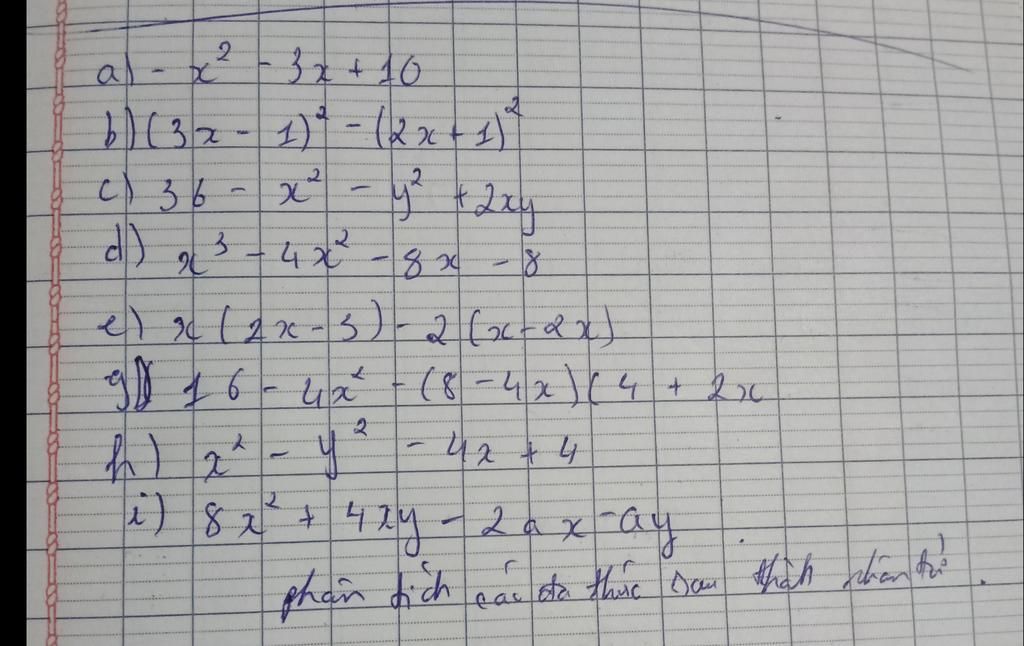 a) - x² - 3x + 10
b) (3x - 1)² - (2x + 1)²
c) 36 - x² - y² + 2xy
d) x³ - 4x² - 8x - 8
e) x(2x - 3) - 2(x - 2x)
g) 16 - 4x² - (8 - 4x)(4 + 2x
h) x² - y² - 4x + 4
i) 8x² + 4xy - 2ax - ay
phân tích các đa thức sau thành nhân tử.